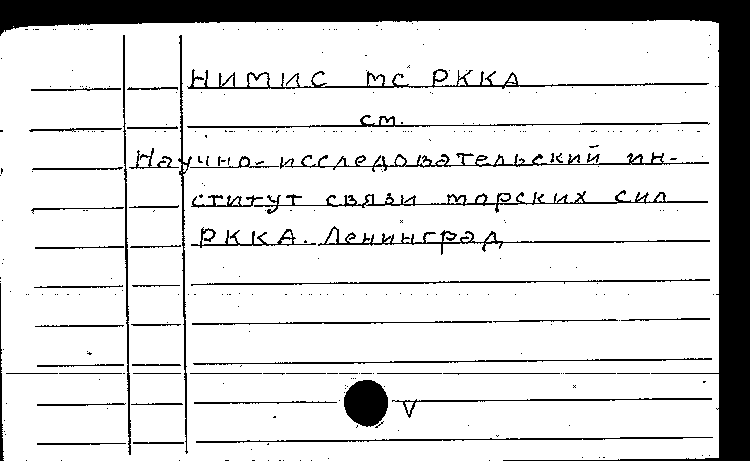 НИМИС МС РККА
см.
Научно-исследовательский ин-
ститут связи морских сил
РККА. Ленинград
V